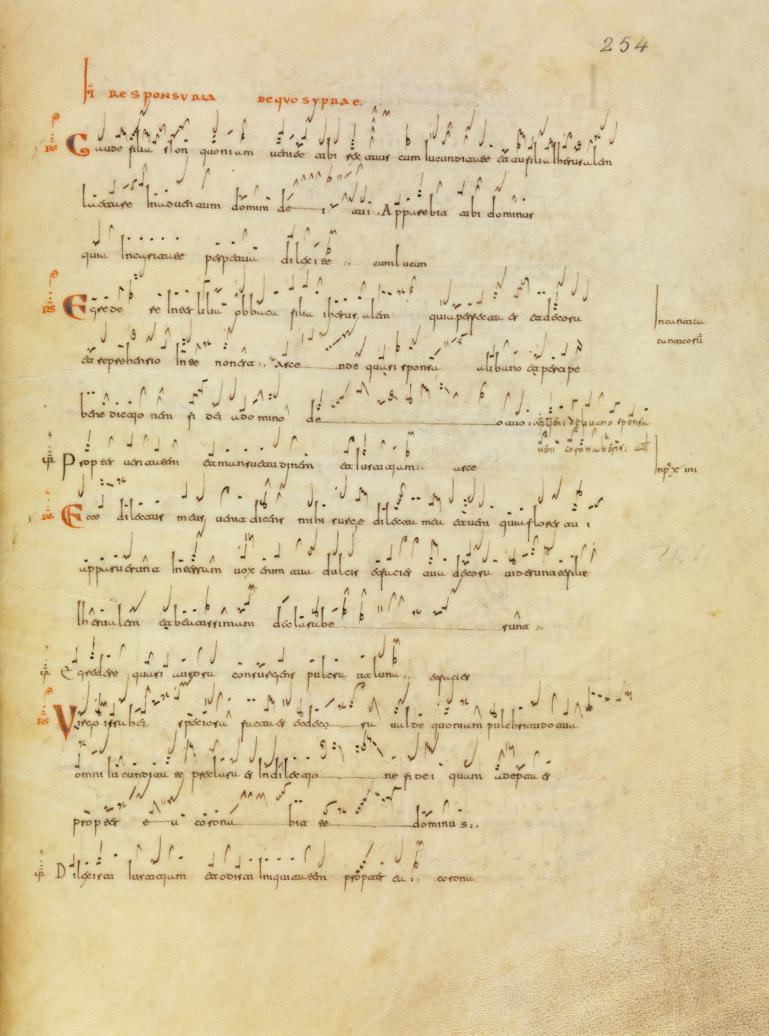 254
IT RESPONSURIA DE QUO SYPRAE.
RS Gaude filia sion quoniam ueniet tibi rex tuus cum Iucunditate et tu filia Iherusalem
letare domini de i Apparebit tibi dominus
quia In caritate perpetua dilexi te :. cum Iucun
RS Egrede re Inter lilia filia iherusalem quia perfecta es et decora
et reprehensio In te non erit :. Asce nde quasi sponsa a libano et percipe
bene dictio nem fi dei a domino de o tuo :.
Propter ueritatem et mansuetudinem et Iustitiam :. asce
RS Ecce dilectus meus uenit dicens mihi surge dilecta mea et ueni quia flores tu i
apparuerunt In terram uox enim tua dulcis et facies tua decora uiderunt te filie
Iherusalem et beatissimam declarabe runt :.
Egredere quasi aurora consurgens pulcra ut luna :. et facies
RS Virgo israhel speciosa facta es et deco ra ualde quoniam pulchritudo tua
omni Iucundita te preclara es In dilectio ne fi dei quam adepta es
propter e a corona bit te dominus :.
Dilexisti Iustitiam et odisti Iniquitatem propter ea :. corona